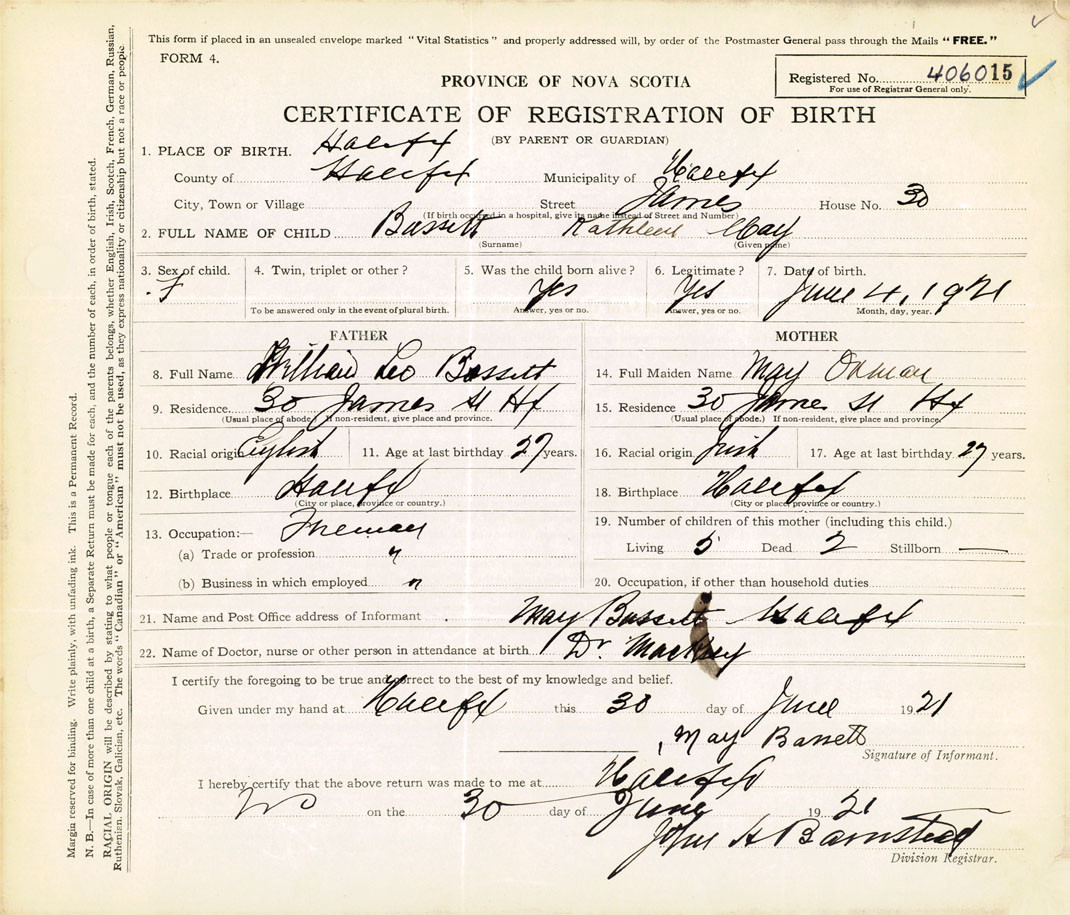 This form if placed in an unsealed envelope marked "Vital Statistics" and properly addressed will, by order of the Postmaster General pass through the Mails "FREE."
FORM 4.
Registered No. 406015
For use of Registrar General only.
PROVINCE OF NOVA SCOTIA
CERTIFICATE OF REGISTRATION OF BIRTH
(BY PARENT OR GUARDIAN)
1. PLACE OF BIRTH. Halifx
County of Halifx Municipality of Halifx
City, Town or Village Street James House No. 30
(If birth occurred in a hospital, give its name instead of Street and Number)
2. FULL NAME OF CHILD Bassett Kathleen May
(Surname) (Given name)
3. Sex of child. 4. Twin, triplet or other? 5. Was the child born alive? 6. Legitimate? 7. Date of birth.
F Yes Yes June 4, 1921
To be answered only in the event of plural birth. Answer, yes or no. Answer, yes or no. Month, day, year.
FATHER MOTHER
8. Full Name William Leo Bassett 14. Full Maiden Name May
9. Residence 30 James St Hfx 15. Residence 30 James St Hfx
(Usual place of abode.) If non-resident, give place and province. (Usual place of abode.) If non-resident, give place and province.
10. Racial origin English 11. Age at last birthday 27 years. 16. Racial origin Irish 17. Age at last birthday 27 years.
12. Birthplace Halifx 18. Birthplace Halifx
(City or place, province or country.) (City or place, province or country.)
13. Occupation:— Fireman 19. Number of children of this mother (including this child.)
(a) Trade or profession " Living 5 Dead 2 Stillborn —
(b) Business in which employed " 20. Occupation, if other than household duties
21. Name and Post Office address of Informant May Bassett Halifx
22. Name of Doctor, nurse or other person in attendance at birth. Dr.
I certify the foregoing to be true and correct to the best of my knowledge and belief.
Given under my hand at Halifx this 30 day of June 1921
May Bassett
Signature of Informant.
I hereby certify that the above return was made to me at Halifx
on the 30 day of June 1921
John A Barnstead
Division Registrar.
Margin reserved for binding. Write plainly, with unfading ink. This is a Permanent Record.
N. B.—In case of more than one child at a birth, a Separate Return must be made for each, and the number of each, in order of birth, stated.
RACIAL ORIGIN will be described by stating to what people or tongue each of the parents belongs, whether English, Irish, Scotch, French, German, Russian,
Ruthenian, Slovak, Galician, etc. The words "Canadian" or "American" must not be used, as they express nationality or citizenship but not a race or people